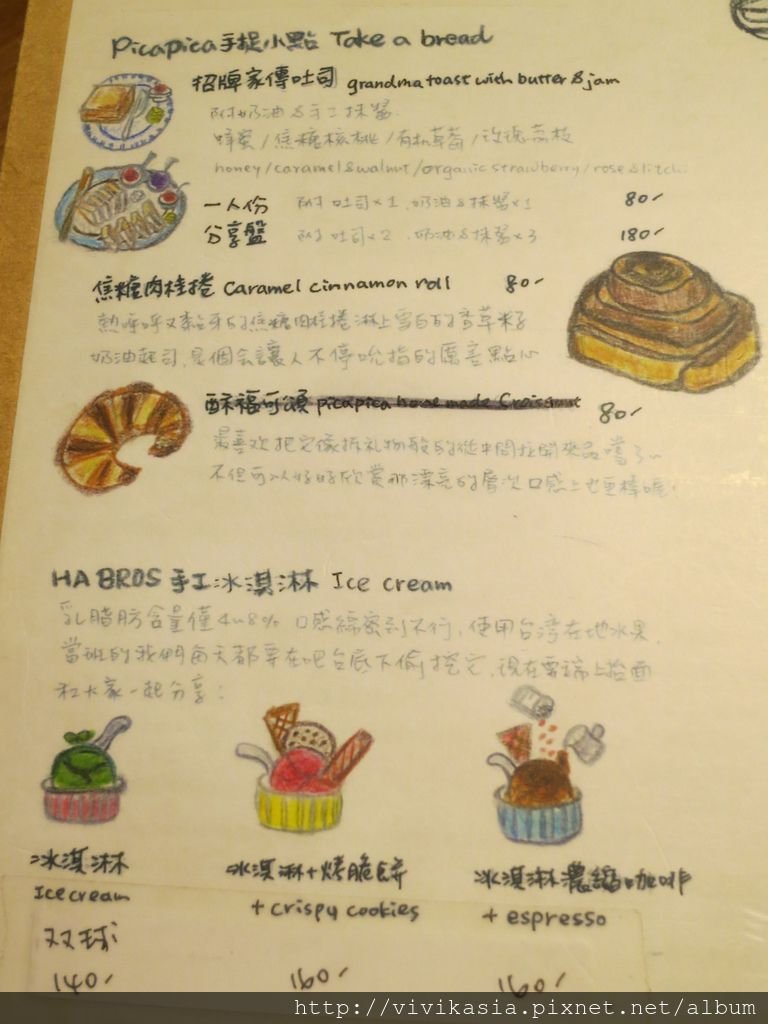 Picapica手捏小點 Take a bread
招牌家傳吐司 grandma toast with butter & jam
附奶油&手工抹醬.
蜂蜜/焦糖核桃/有机草莓/玫瑰荔枝
honey/caramel&walnut/organic strawberry/rose&litchi
一人份 附吐司×1.奶油&抹醬×1 80-
分享盤 附吐司×2.奶油&抹醬×3 180-
焦糖肉桂捲 Caramel cinnamon roll 80-
熱呼呼又黏牙的焦糖肉桂捲淋上雪白的香草籽
奶油起司,是個会讓人不停吮指的厲害點心
酥福可頌 picapica home made Croissant 80-
最喜欢把它像拆礼物般的從中間拉開來品嚐了~
不但可以好好欣賞那漂亮的層次口感上也更棒喔!
HA BROS 手工冰淇淋 Ice cream
乳脂肪含量僅4~8% 口感綿密到不行,使用台湾在地水果.
當班的我們每天都要在吧台底下偷挖它.現在要端上抬面
和大家一起分享!
冰淇淋
Ice cream
双球
140-
冰淇淋+烤脆餅
+ crispy cookies
160-
冰淇淋濃縮咖啡
+ espresso
160-
http://vivikasia.pixnet.net/album